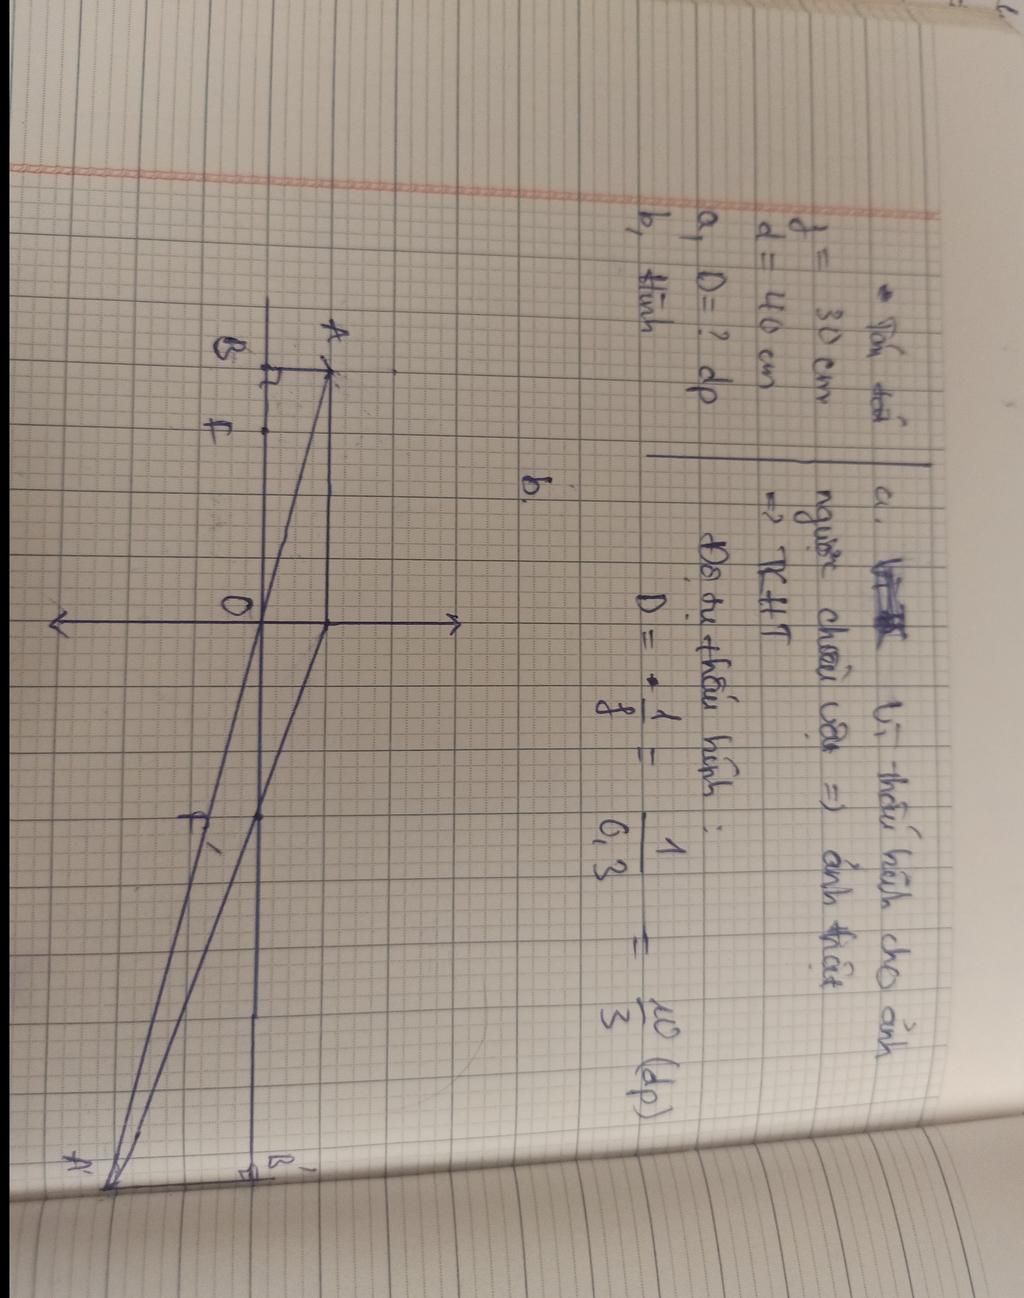 • Tóm tắt
f = 30 cm
d = 40 cm
a, D = ? dp
b, Hình
a. Vì thấu kính cho ảnh
ngược chiều vật => ảnh thật
=> TKHT
Độ tụ thấu kính :
D = 1/f = 1/0,3 = 10/3 (dp)
b.
A
B
F
O
F'
B'
A'